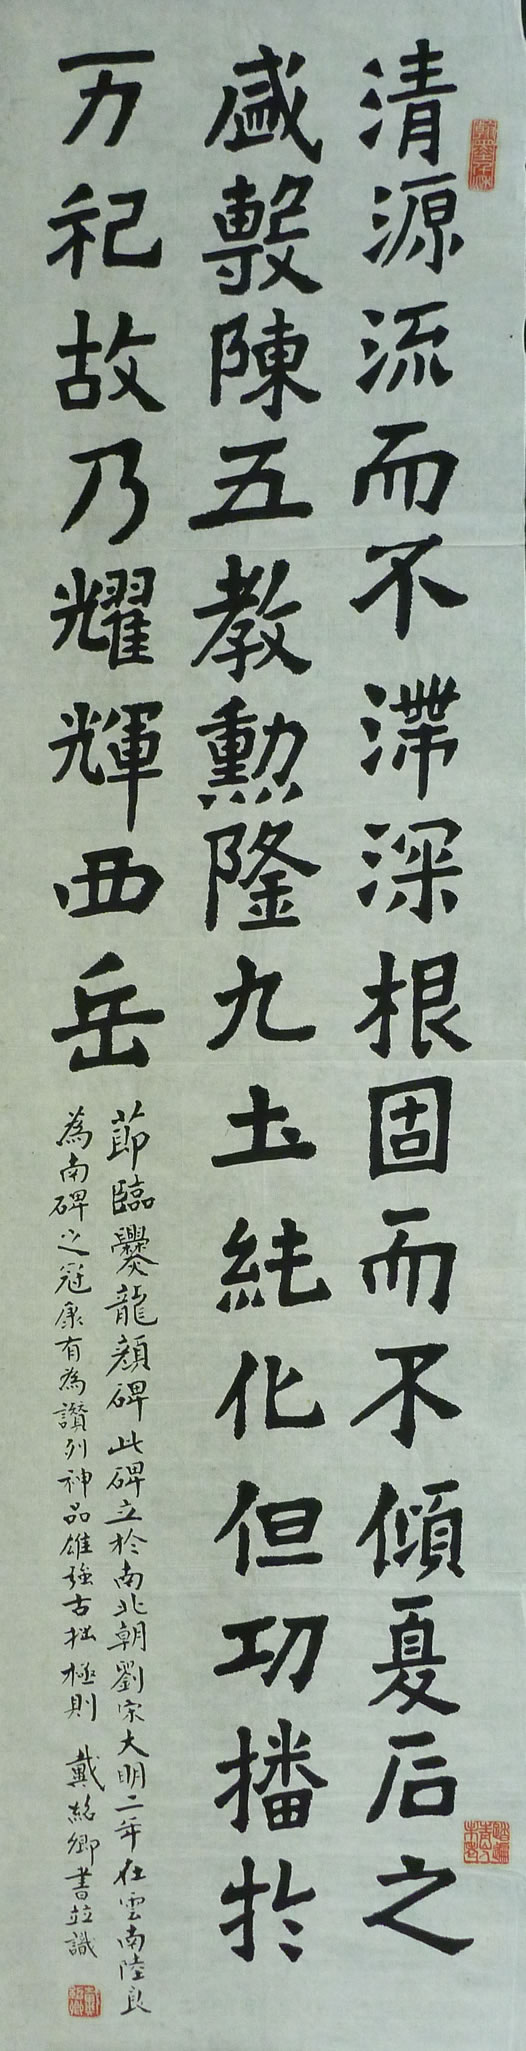 清源流而不滯深根固而不傾夏后之
盛敷陳五教勳隆九土純化但功播於
万祀故乃耀輝西岳
節臨爨龍顏碑此碑立於南北朝劉宋大明二年在雲南陸良
為南碑之冠康有為讚列神品雄強古拙極則 戴銘卿書並識